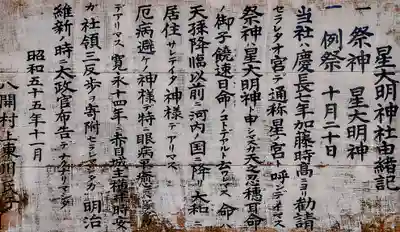 星大明神社由緒記
一 祭神 星大明神
一 例祭 十月二十日
当社ハ慶長十年加藤時高ニヨリ勧請
セラレタオ宮デ通称星ノ宮ト呼ンデイマス
祭神ハ星大明神ト申シマスガ天之忍穂耳命
ノ御子饒速日命
天孫降臨以前ニ河内ノ国ニ降リ大和ニ
居住サレテイタ神様デアリマス
厄病避ケノ神様デ特ニ眼病ヲ癒
デアリマス 寛永十四年ニ赤風土
ガ社領三反歩ヲ寄附 明治
維新ノ時ニ太政官布告デナクナリマシタ
昭和五十五年十一月
八開村上東川